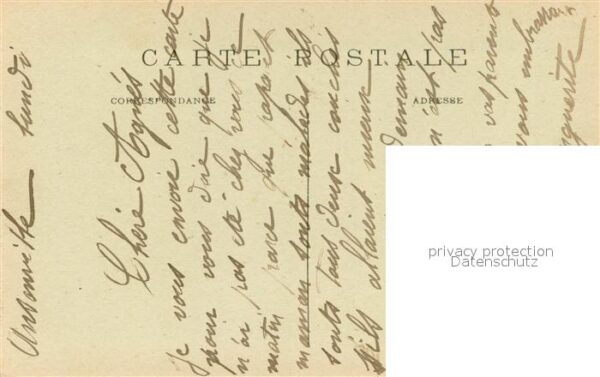 CARTE POSTALE
CORRESPONDANCE
ADRESSE
lundi
Chère Agnès
je vous envoie cette carte
pour vous dire que je
n'ai pas été chez vous ce
matin parce que papa et
maman sont malades ils
sont tous deux couchés
s'ils allaient mieux
demain
n'ont pas
vos parents
vous embrassant
privacy protection
Datenschutz